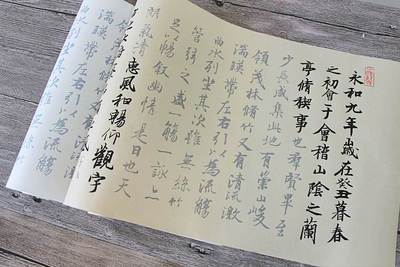 永和九年歲在癸丑暮春
之初會于會稽山陰之蘭
亭脩稧事也羣賢畢至
少長咸集此地有崇山峻
領茂林脩竹又有清流激
湍暎帶左右引以為流觴
曲水列坐其次雖無絲竹
管弦之盛一觴一詠
足以暢叙幽情是日也天
朗氣清惠風和暢仰觀宇
曲水列坐其次
湍暎帶左右引以為流觴